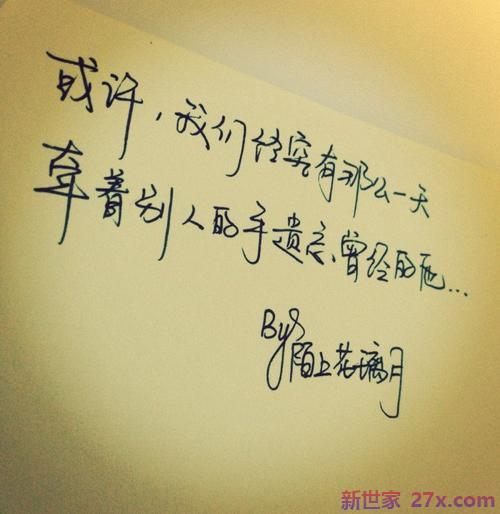 或许，我们终究有那么一天
牵着别人的手遗忘曾经的他...
By
陌上花璃月
新世家 27x.com